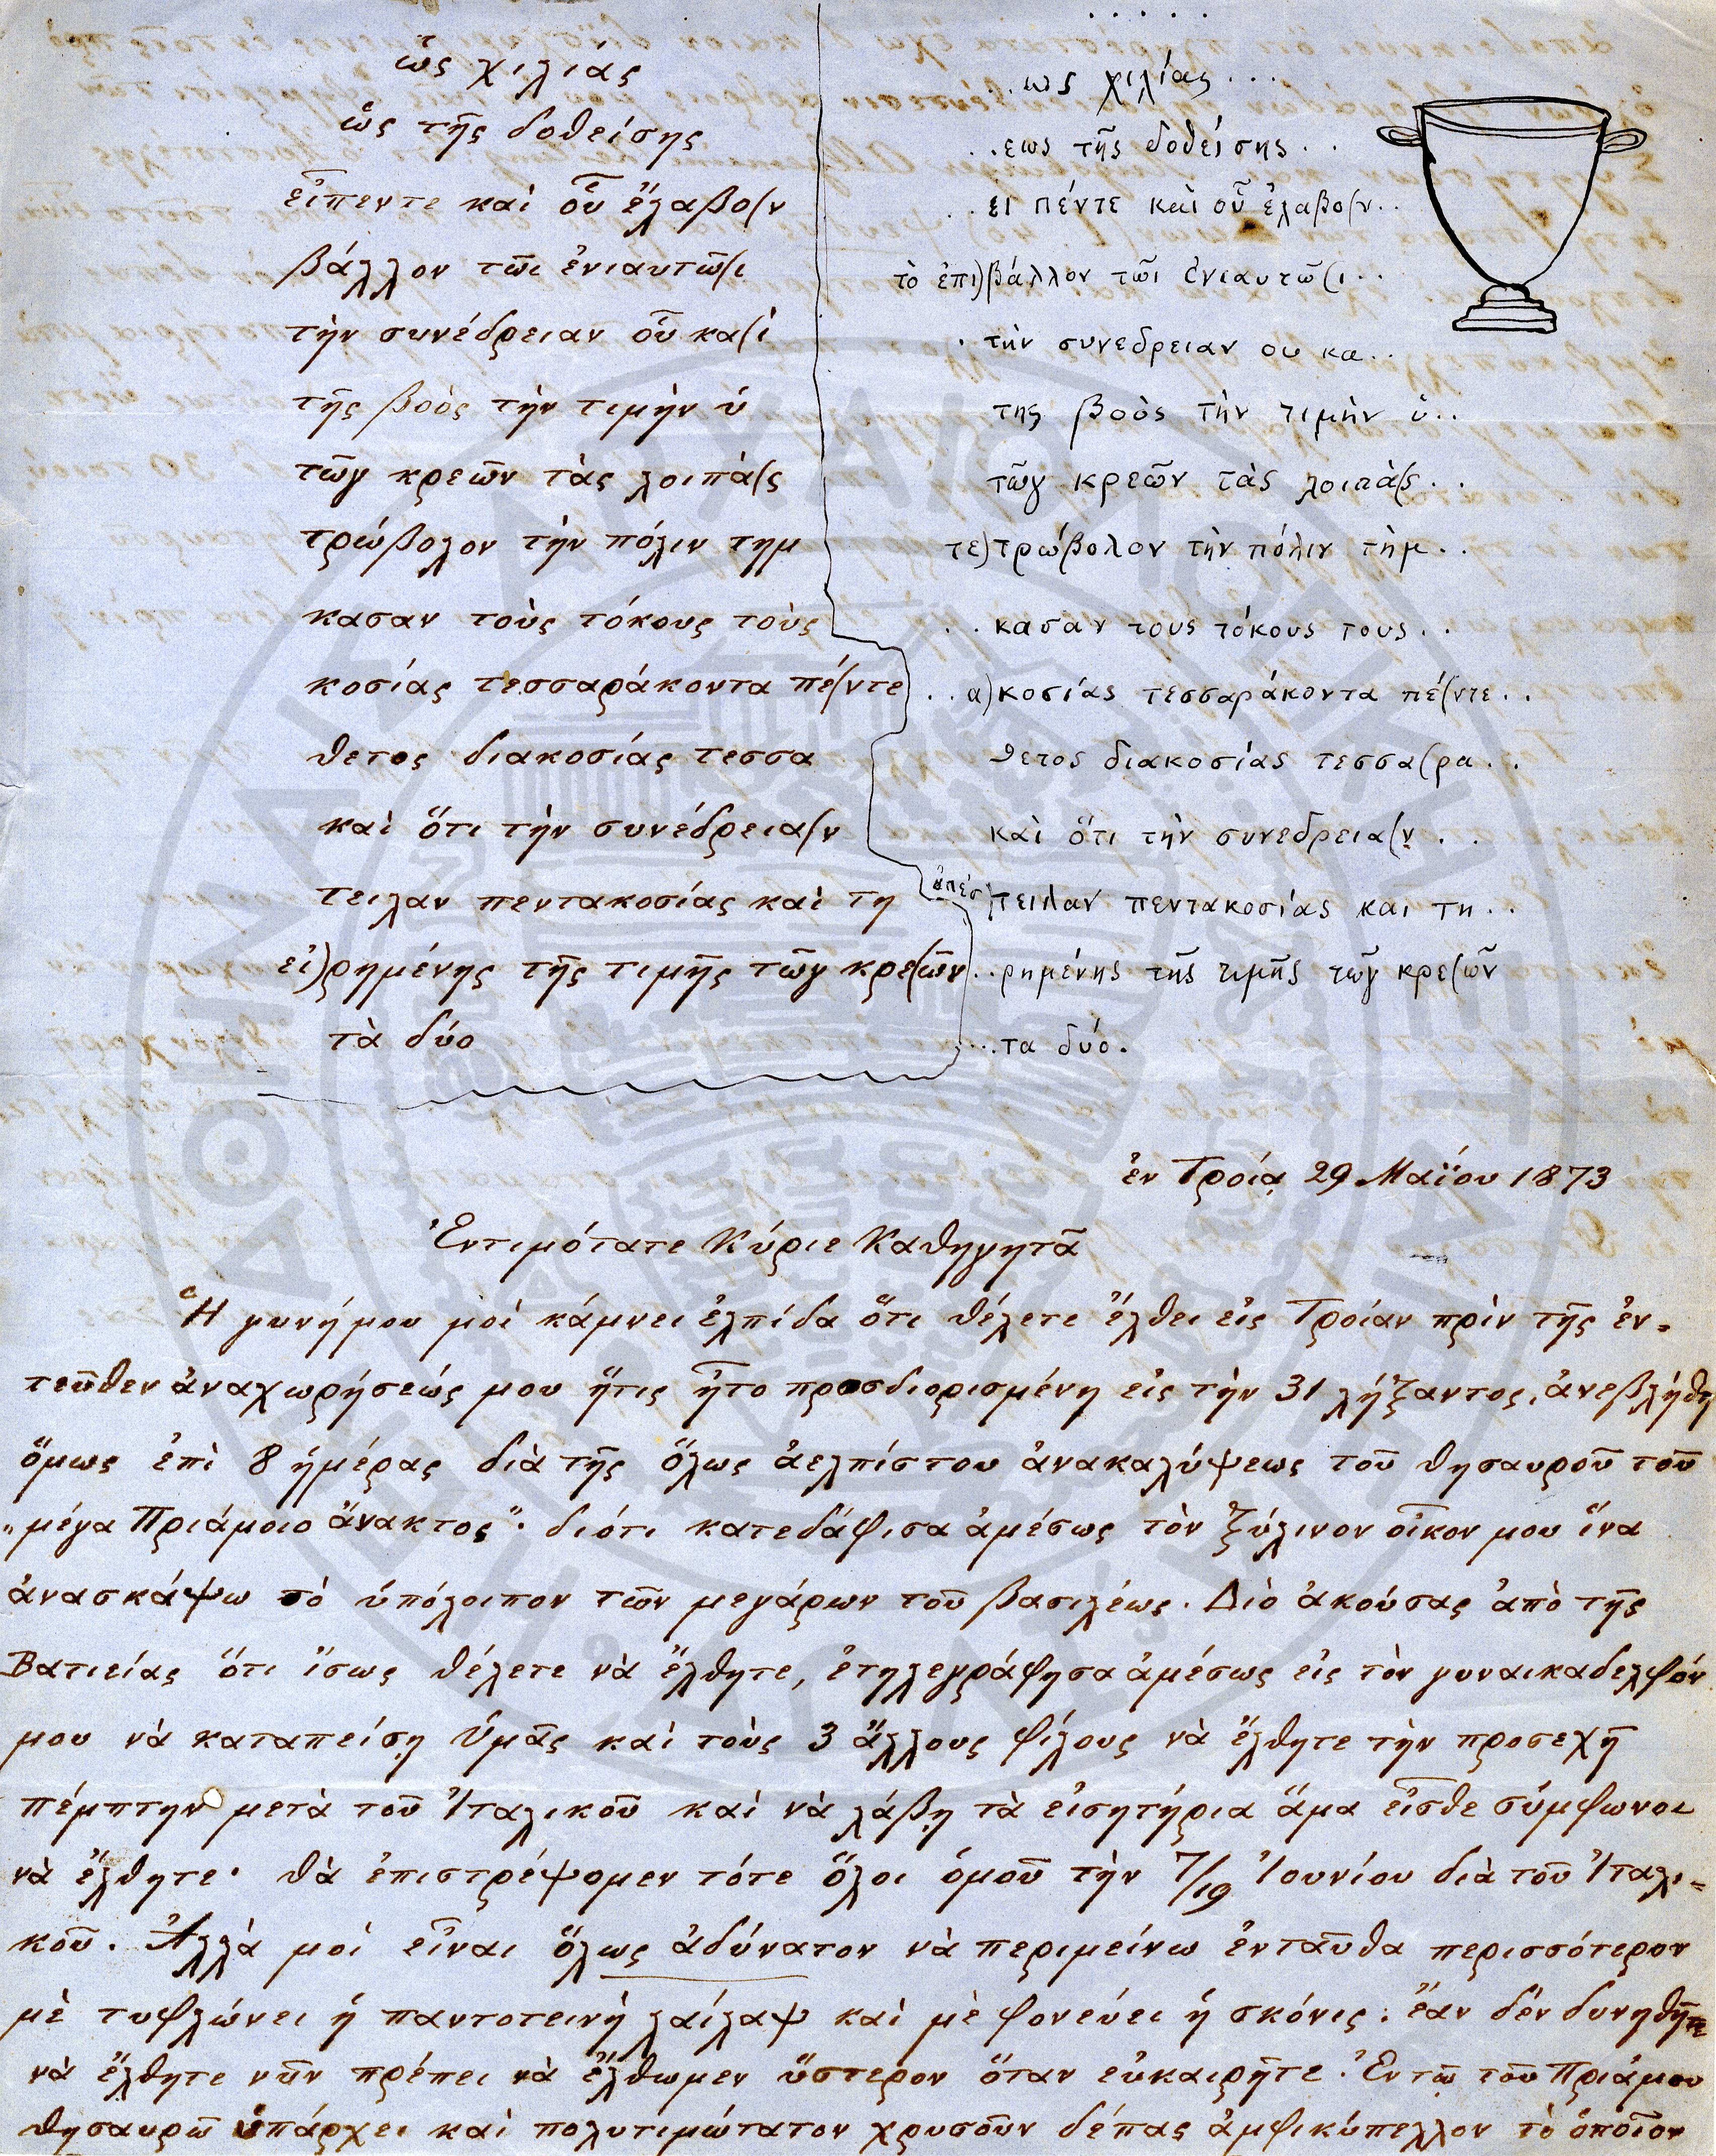 ὣς χιλιάς
ὣς τῆς δοθείσης
εἶπεντε καὶ οὗ ἔλαβο(ν
βάλλον τῶι ἐνιαυτῶ(ι
τὴν συνέδρειαν οὗ κα(ὶ
τῆς βοὸς τὴν τιμὴν ὑ
τῶγ κρεῶν τὰς λοιπὰ(ς
τρώβολον τὴν πόλιν τημ
κασαν τοὺς τόκους τοὺς
κοσίας τεσσαράκοντα πέ(ντε
θετος διακοσίας τεσσα
καὶ ὅτι τὴν συνέδρεια(ν
τειλαν πεντακοσίας καὶ τη
εἰ)ρημένης τῆς τιμῆς τῶγ κρε(ῶν
τὰ δύο
. . . . .
..ως χιλίας ...
..εως τῆς δοθείσης..
..ει πέντε καὶ οὗ ἐλαβο(ν..
τὸ ἐπι)βάλλον τῶι ἐνιαυτῶ(ι..
. τὴν συνεδρειαν ου κα..
της βοὸς τὴν τιμὴν ὑ..
τῶγ κρεῶν τὰς λοιπὰ(ς..
τε)τρώβολον τὴν πόλιν τὴμ..
..κασαν τους τόκους τους..
..α)κοσίας τεσσαράκοντα πέ(ντε..
θετος διακοσίας τεσσα(ρα...
καὶ ὅτι τὴν συνεδρεια(ν ..
ἀπέσ)τειλαν πεντακοσίας και τη..
..ρημένης τῆς τιμῆς τῶγ κρε(ῶν
...τα δύο.
ἐν Τροίᾳ 29 Μαΐου 1873
Ἐντιμότατε Κύριε Καθηγητᾶ
Ἡ γυνή μου μοὶ κάμνει ἐλπίδα ὅτι θέλετε ἔλθει εἰς Τροίαν πρὶν τῆς ἐν=
τεῦθεν ἀναχωρήσεώς μου ἥτις ἦτο προσδιορισμένη εἰς τὴν 31 λήξαντος, ἀνεβλήθη
ὅμως ἐπὶ 8 ἡμέρας διὰ τῆς ὅλως ἀελπίστου ἀνακαλύψεως τοῦ θησαυροῦ τοῦ
„μέγα Πριάμοιο ἄνακτος"· διότι κατεδάφισα ἀμέσως τὸν ξύλινον οἶκον μου ἵνα
ἀνασκάψω τὸ ὑπόλοιπον τῶν μεγάρων τοῦ βασιλέως. Διὸ ἀκούσας ἀπὸ τῆς
Βατιείας ὅτι ἴσως θέλετε νὰ ἔλθητε, ἐτηλεγράφησα ἀμέσως εἰς τὸν γυναικαδελφόν
μου νὰ καταπείσῃ Ὑμᾶς καὶ τοὺς 3 ἄλλους φίλους νὰ ἔλθητε τὴν προσεχῆ
πέμπτην μετὰ τοῦ Ἰταλικοῦ καὶ νὰ λάβῃ τὰ εἰσητήρια ἅμα εἶσθε σύμφωνοι
νὰ ἔλθητε· θὰ ἐπιστρέψομεν τότε ὅλοι ὁμοῦ τὴν 7/19 Ἰουνίου διὰ τοῦ Ἰταλι=
κοῦ. Ἀλλὰ μοὶ εἶναι ὅλως ἀδύνατον νὰ περιμείνω ἐνταῦθα περισσότερον
μὲ τυφλώνει ἡ παντοτεινὴ λαίλαψ καὶ μὲ φονεύει ἡ σκόνις· ἐὰν δὲν δυνηθῆτε
νὰ ἔλθητε νῦν πρέπει νὰ ἔλθωμεν ὕστερον ὅταν εὐκαιρῆτε. Ἐν τῷ τοῦ Πριάμου
θησαυρῷ ὑπάρχει καὶ πολυτιμώτατον χρυσοῦν δέπας ἀμφικύπελλον τὸ ὁποῖον